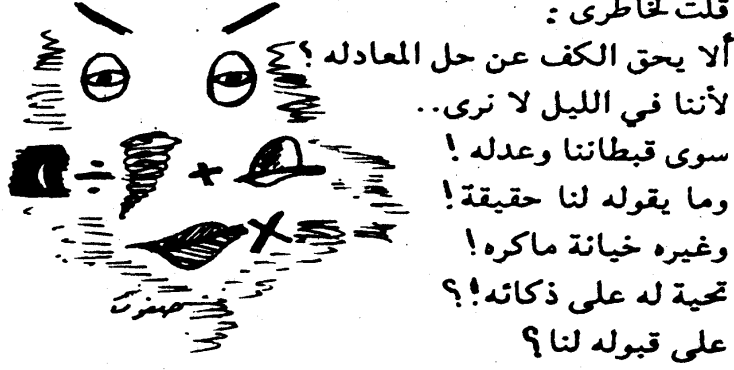 قلت لخاطرى :
ألا يحق الكف عن حل المعادله ؟
لأننا في الليل لا نرى..
سوى قبطاننا وعدله !
وما يقوله لنا حقيقة!
وغيره خيانة ماكره!
تحية له على ذكائه!؟
على قبوله لنا؟
÷ + ×
صفوت